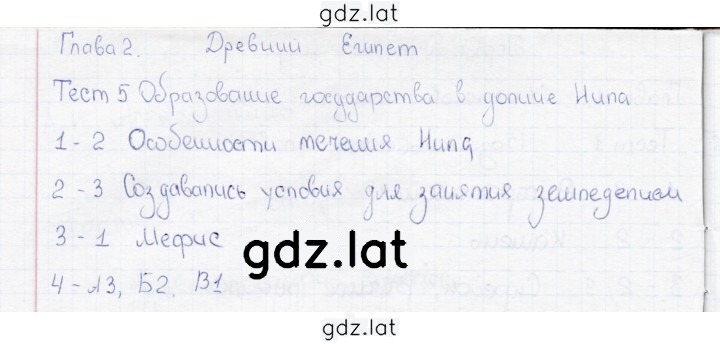 gdz.lat
Глава 2. Древний Египет
Тест 5 Образование государства в долине Нила
1 - 2 Особенности течения Нила
2 - 3 Создавались условия для занятия земледелием
3 - 1 Мефис
gdz.lat
4 - А3, Б2, В1
gdz.lat